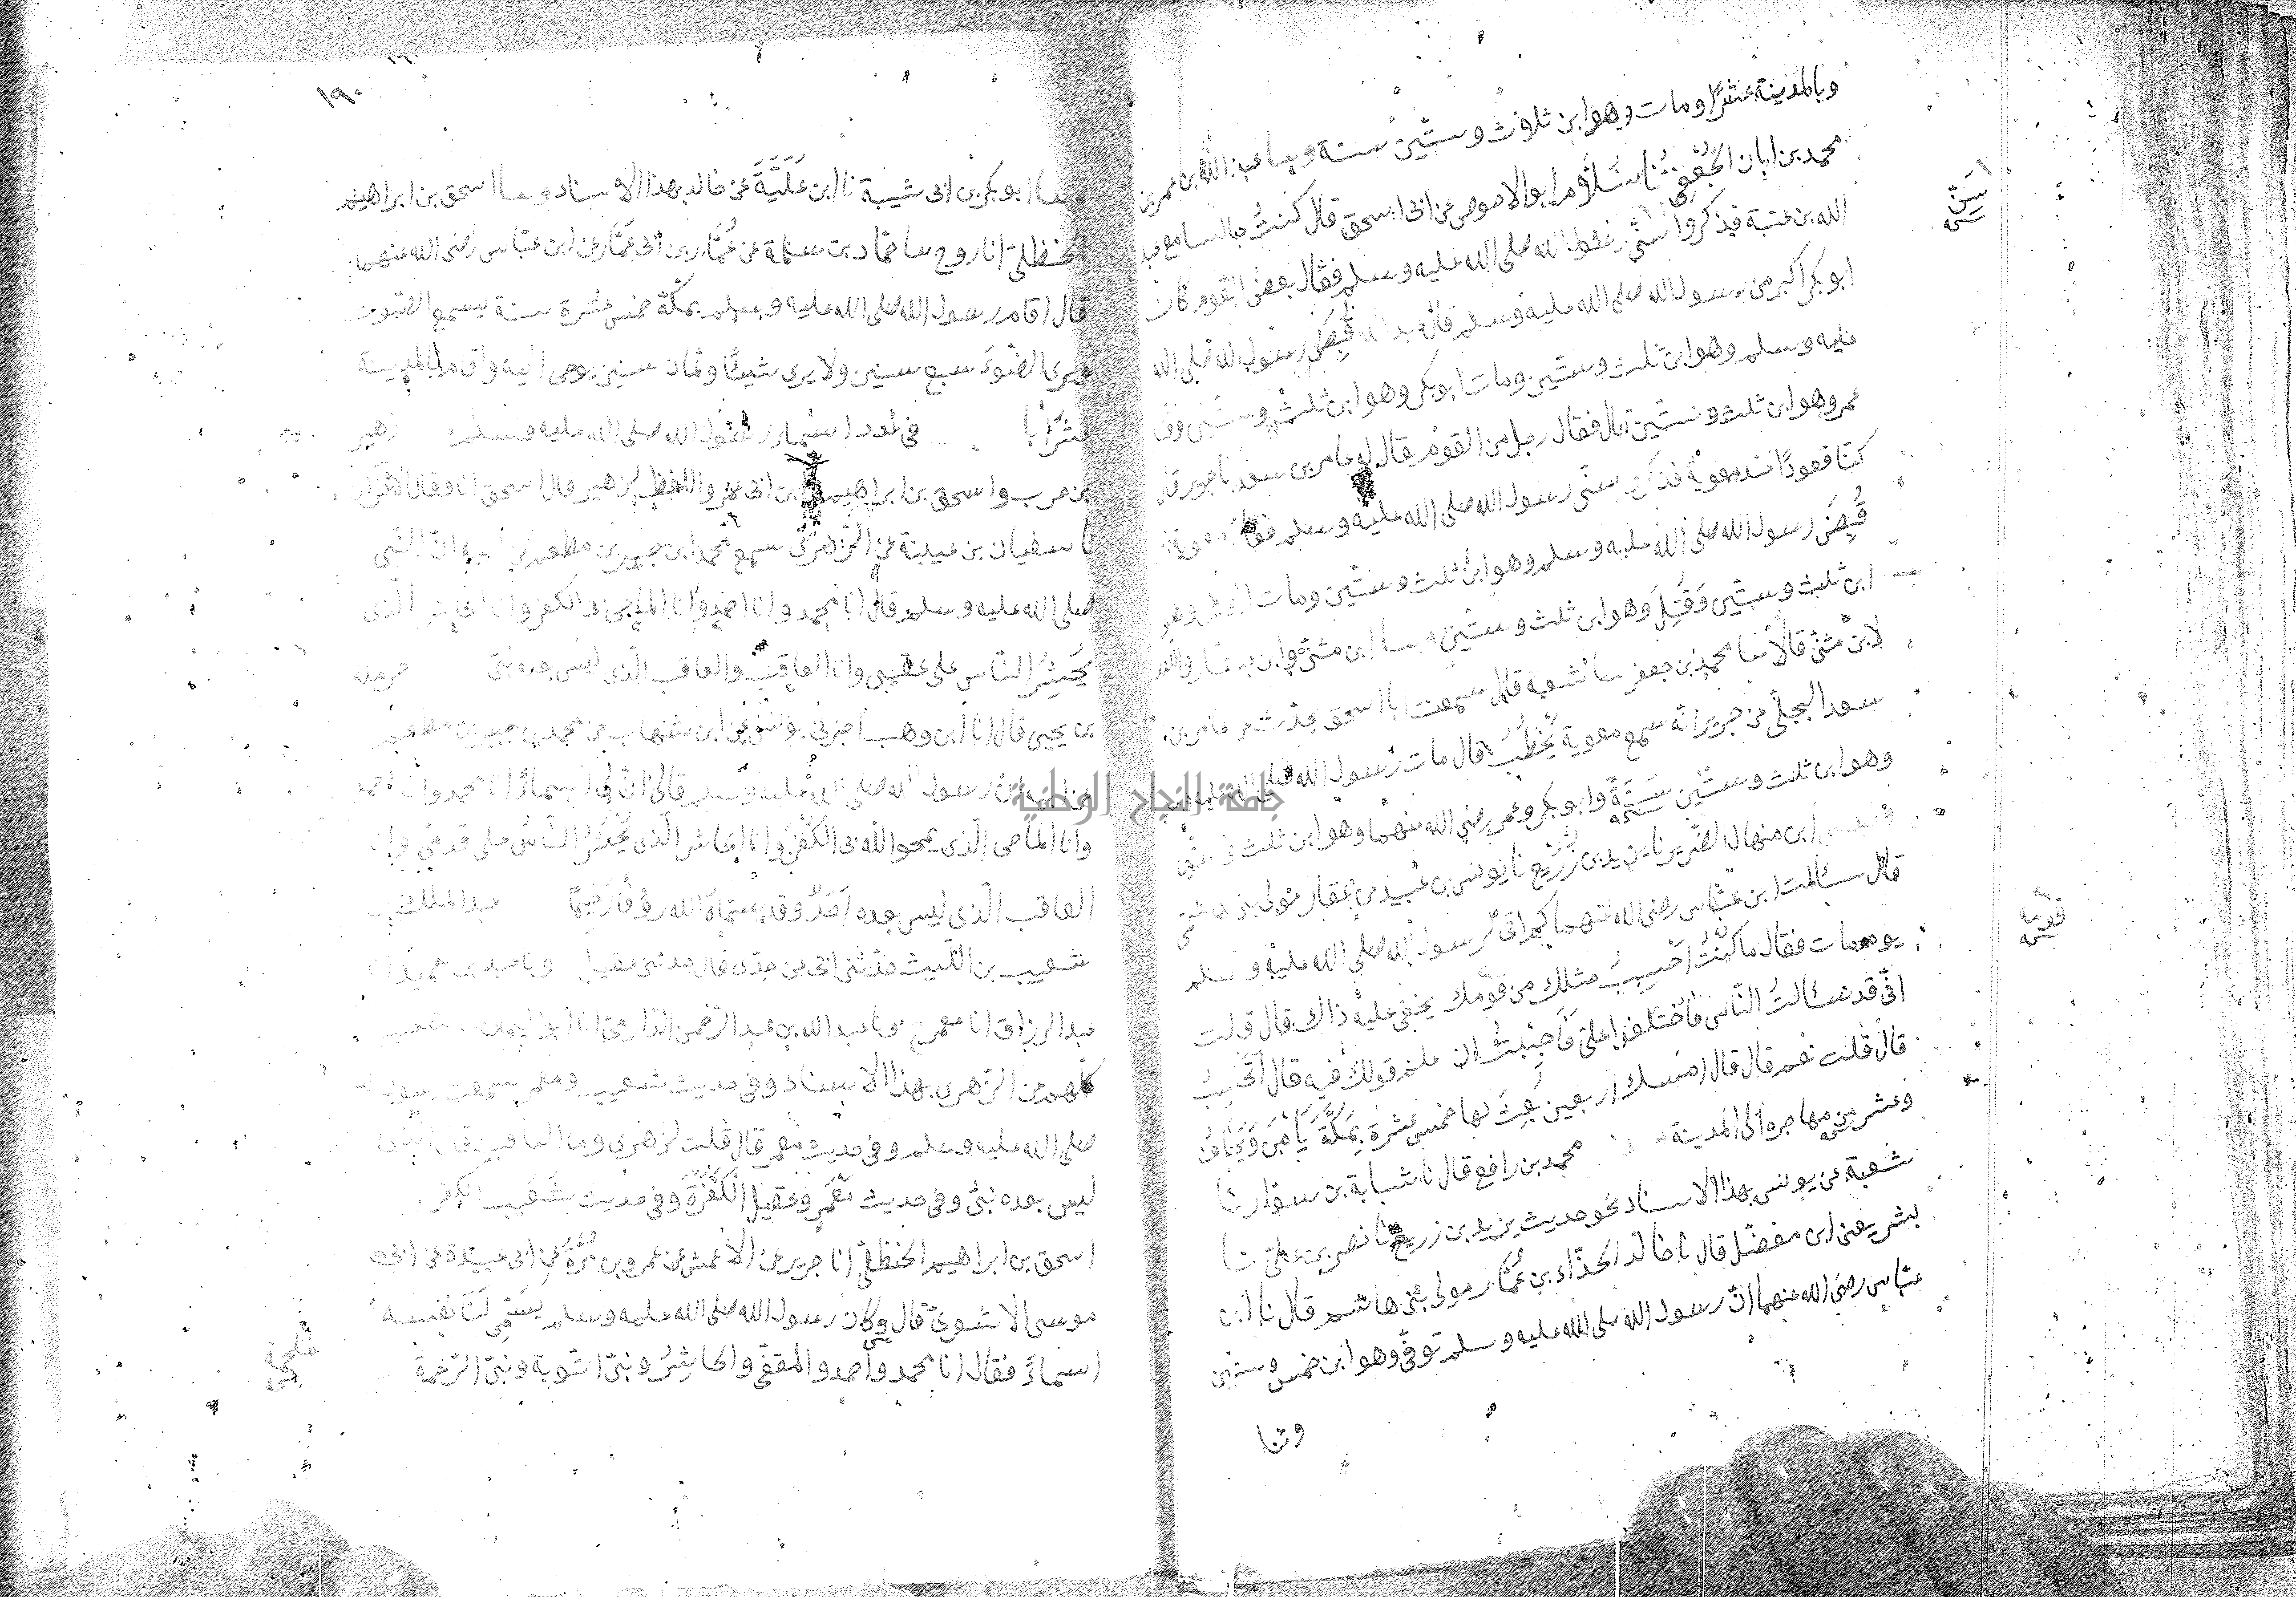 وبالمدينة عشرًا ومات وهو ابن ثلاث وستّين سنة وسا عبد الله بن عمر بن
محمد بن ابان الجُعْفِيّ نا سَلّام ابو الاحوص عن ابي اسحق قال كنتُ جالسا مع عبد
الله بن عتبة فذكروا سني رسول الله صلى الله عليه وسلم فقال بعض القوم كان
ابو بكر اكبر من رسول الله صلى الله عليه وسلم قال عبد الله قُبِضَ رسول الله صلى الله
عليه وسلم وهو ابن ثلث وستّين ومات ابو بكر وهو ابن ثلث وستين وقتل
عمر وهو ابن ثلث وستّين قال فقال رجل من القوم يقال له عامر بن سعد نا جرير قال
كنّا قعودًا عند معوية فذكروا سنّى رسول الله صلى الله عليه وسلم فقال معوية
قُبِضَ رسول الله صلى الله عليه وسلم وهو ابن ثلث وستّين ومات ابو بكر وهو
ابن ثلث وستّين وَقُتِلَ وهو ابن ثلث وستّين وسا ابن مثنّى وابن بشار واللفظ
لابن مثنّى قالا نا محمد بن جعفر سا شعبة قال سمعت ابا اسحق يحدّث عن عامر بن
سعد البجليّ عن جرير انّه سمع معوية يَخْطُبُ قال مات رسول الله صلى الله عليه وسلم
وهو ابن ثلث وستّين سَنَةً وابو بكر وعمر رضي الله عنهما وهو ابن ثلث وستّين
ابن منهال الضّرير نا يزيد بن زُرَيْع نا يونس بن عُبيد عن عمّار مولى بني هاشم
قال سئالت ابن عبّاس رضي الله عنهما كم اتى لرسول الله صلى الله عليه وسلم
يوم مات فقال ما كُنْتُ اَحْسِبُ مثلك من قومك يخفى عليه ذاك قال قلت
انّي قد سئالتُ النّاس فاختلفوا علىّ فَاَحْبَبْتُ ان اعلم قولك فيه قال اَتَحْسُبُ
قال قلت نعم قال قال امسك اربعين بُعِثَ لها خمس عشرة بِمَكَّةَ يَأْمَنُ وَيَخَافُ
وعشر من مهاجره الى المدينة محمد بن رافع قال نا شبابة بن سوّار نا
شعبة عن يونس بهذا الاسناد نحو حديث يزيد بن زريع نا نصر بن علىّ نا
بشر يعنى ابن مفضّل قال نا خالد الحذّاء بن عُمَّار مولى بنى هاشم قال نا ابن
عبّاس رضى الله عنهما انّ رسول الله صلى الله عليه وسلم توفّي وهو ابن خمس وستين
وثنا
١٩٠
وسا ابو بكر بن ابى شيبة نا ابن عُلَيَّةَ عن خالد بهذا الاسناد وسا اسحق بن ابراهيم
الحنظليّ انا روح سا حمّاد بن سلمة عن عُمّار بن ابى عُمّار عن ابن عبّاس رضى الله عنهما
قال اقام رسول الله صلى الله عليه وسلم بمكّة خمس عشرة سنة يسمع الصّوت
ويرى الضّوءَ سبع سنين ولا يرى شيئًا وثمان سنين يوحى اليه واقام بالمدينة
عشرًا با فى عدد اسماء رسول الله صلى الله عليه وسلم زهير
بن حرب واسحق بن ابراهيم وابن ابى عمر واللفظ لزهير قال اسحق انا وقال الآخران
نا سفيان بن عيينة عن الزّهرى سمع محمد ابن جبير بن مطعم عن ابيه انّ النّبى
صلى الله عليه وسلم قال انا محمد وانا احمد وانا الماحى بى الكفر وانا الحاشر الّذى
يُحْشَرُ النّاس على عقبى وانا العاقب والعاقب الّذى ليس بعده نبىّ حرملة
بن يحيى قال انا ابن وهب اخبرنى يونس عن ابن شهاب عن محمد بن جبير بن مطعم
عن ابيه انّ رسول الله صلى الله عليه وسلم قال انّ لى اسماءً انا محمد وانا احمد
وانا الماحى الّذى يمحو الله بى الكُفْرَ وانا الحاشر الّذى يُحْشَرُ النّاسُ على قدمى وانا
العاقب الّذى ليس بعده اَحَدٌ وقد سمّاه الله رؤفًا رحيمًا عبد الملك بن
شعيب بن اللّيث حدّثنى ابى عن جدّى قال حدثنى عقيل ونا عبد بن حميد انا
عبد الرزاق انا معمر ح ونا عبد الله بن عبد الرّحمن الدّارمىّ انا ابو اليمان انا شعيب
كلّهم عن الزّهرى بهذا الاسناد وفى حديث شعيب ومعمر سمعت رسول
صلى الله عليه وسلم وفى حديث معمر قال قلت لزهرى وما العاقب قال الّذى
ليس بعده نبىّ وفى حديث مَعْمَرٍ وعقيل الْكَفَرَةَ وفى حديث شُعَيب الكفر
اسحق بن ابراهيم الحنظلىّ انا جرير عن الاعمش عن عمرو بن مُرَّةَ عن ابى عبيدة عن ابى
موسى الاشعرىّ قال وكان رسول الله صلى الله عليه وسلم يُسَمِّى لَنَا نفسه
اسماءً فقال انا محمد واحمد والمقفّى والحاشِرُ ونبىّ التّوبة ونبىّ الرّحمة
جامعة النجاح الوطنية